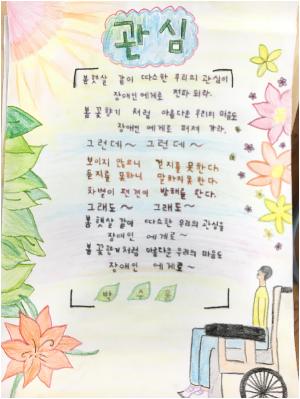 관심
봄햇살 같이 따스한 우리의 관심이
장애인에게로 전파 되라.
봄꽃향기 처럼 아름다운 우리의 마음도
장애인 에게로 퍼져 가라.
그런데~ 그런데~
보이지 않으니 걷지를 못한다.
듣지를 못하니 말하지 못 한다.
차별이 편견이 방해를 한다.
그래도~ 그래도~
봄햇살 같이 따스한 우리의 관심을
장애인 에게로~
봄 꽃향기처럼 아름다운 우리의 마음도
장애인 에게로~